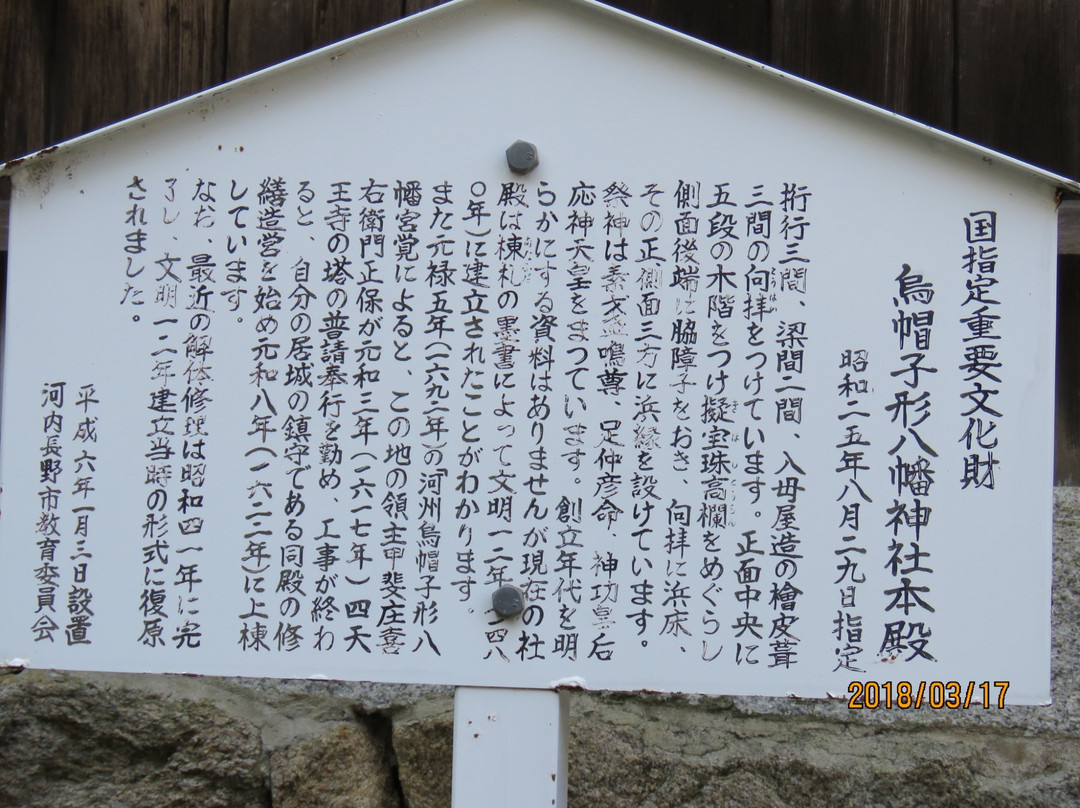 国指定重要文化財
烏帽子形八幡神社本殿
昭和二五年八月二九日指定
桁行三間、梁間二間、入母屋造の檜皮葺
三間の向拝をつけています。正面中央に
五段の木階をつけ擬宝珠高欄をめぐらし
側面後端に脇障子をおき、向拝に浜床、
その正側面三方に浜縁を設けています。
祭神は素戔嗚尊、足仲彦命、神功皇后
応神天皇をまつています。創立年代を明
らかにする資料はありませんが現在の社
殿は棟札の墨書によって文明一二年 四八
〇年)に建立されたことがわかります。
また元禄五年(一六九二年)の「河州烏帽子形八
幡宮覚によると、この地の領主甲斐庄喜
右衛門正保が元和三年(一六一七年)四天
王寺の塔の普請奉行を勤め、工事が終わ
ると、自分の居城の鎮守である同殿の修
繕造営を始め元和八年(一六二二年)に上棟
しています。
なお、最近の解体修理は昭和四一年に完
了し、文明一二年建立当時の形式に復原
されました。
平成六年一月三日設置
河内長野市教育委員会
2018/03/17